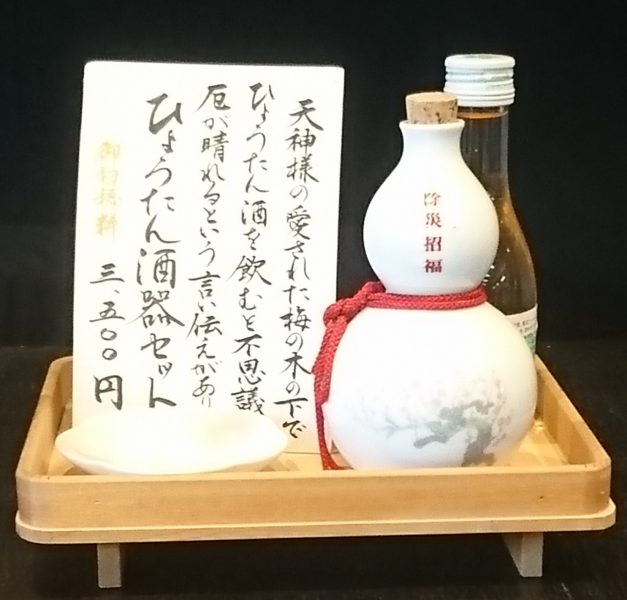 天神様の愛された梅の木の下で
ひょうたん酒を飲むと不思議
厄が晴れるという言い伝えがあり
ひょうたん酒器セット
御初穂料
三、五〇〇円
除災招福